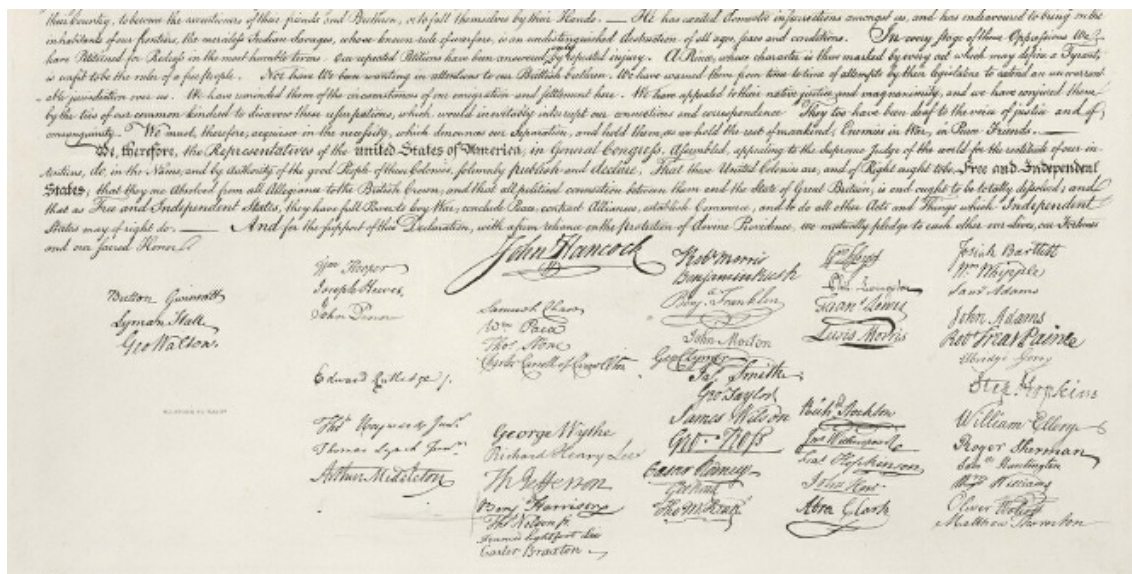 their Country, to become the executioners of their friends and Brethren, or to fall themselves by their Hands. — He has excited domestic insurrections amongst us, and has endeavoured to bring on the
inhabitants of our frontiers, the merciless Indian Savages, whose known rule of warfare, is an undistinguished destruction of all ages, sexes and conditions. In every stage of these Oppressions We
have Petitioned for Redress in the most humble terms: Our repeated Petitions have been answered only by repeated injury. A Prince, whose character is thus marked by every act which may define a Tyrant,
is unfit to be the ruler of a free people. Nor have We been wanting in attentions to our Brittish brethren. We have warned them from time to time of attempts by their legislature to extend an unwarrant-
able jurisdiction over us. We have reminded them of the circumstances of our emigration and settlement here. We have appealed to their native justice and magnanimity, and we have conjured them
by the ties of our common kindred to disavow these usurpations, which, would inevitably interrupt our connections and correspondence. They too have been deaf to the voice of justice and of
consanguinity. We must, therefore, acquiesce in the necessity, which denounces our Separation, and hold them, as we hold the rest of mankind, Enemies in War, in Peace Friends. —
We, therefore, the Representatives of the united States of America, in General Congress, Assembled, appealing to the Supreme Judge of the world for the rectitude of our in-
tentions, do, in the Name, and by Authority of the good People of these Colonies, solemnly publish and declare, That these United Colonies are, and of Right ought to be, Free and Independent
States; that they are Absolved from all Allegiance to the British Crown, and that all political connection between them and the State of Great Britain, is and ought to be totally dissolved; and
that as Free and Independent States, they have full Power to levy War, conclude Peace, contract Alliances, establish Commerce, and to do all other Acts and Things which Independent
States may of right do. — And for the support of this Declaration, with a firm reliance on the protection of divine Providence, we mutually pledge to each other our Lives, our Fortunes
and our sacred Honor.
Button Gwinnett
Lyman Hall
Geo Walton.
Wm Hooper
Joseph Hewes,
John Penn
Edward Rutledge /.
Thos Heyward Junr.
Thomas Lynch Junr.
Arthur Middleton
John Hancock
Samuel Chase
Wm. Paca
Thos. Stone
Charles Carroll of Carrollton
George Wythe
Richard Henry Lee
Th Jefferson
Benj Harrison
Thos Nelson jr.
Francis Lightfoot Lee
Carter Braxton
Robt Morris
Benjamin Rush
Benj. Franklin
John Morton
Geo Clymer
Jas. Smith
Geo. Taylor
James Wilson
Geo. Ross
Caesar Rodney
Geo Read
Tho M:Kean
Wm Floyd
Phil. Livingston
Frans. Lewis
Lewis Morris
Richd. Stockton
Jno Witherspoon
Fras. Hopkinson
John Hart
Abra Clark
Josiah Bartlett
Wm. Whipple
Saml Adams
John Adams
Robt Treat Paine
Elbridge Gerry
Step. Hopkins
William Ellery
Roger Sherman
Saml Huntington
Wm. Williams
Oliver Wolcott
Matthew Thornton